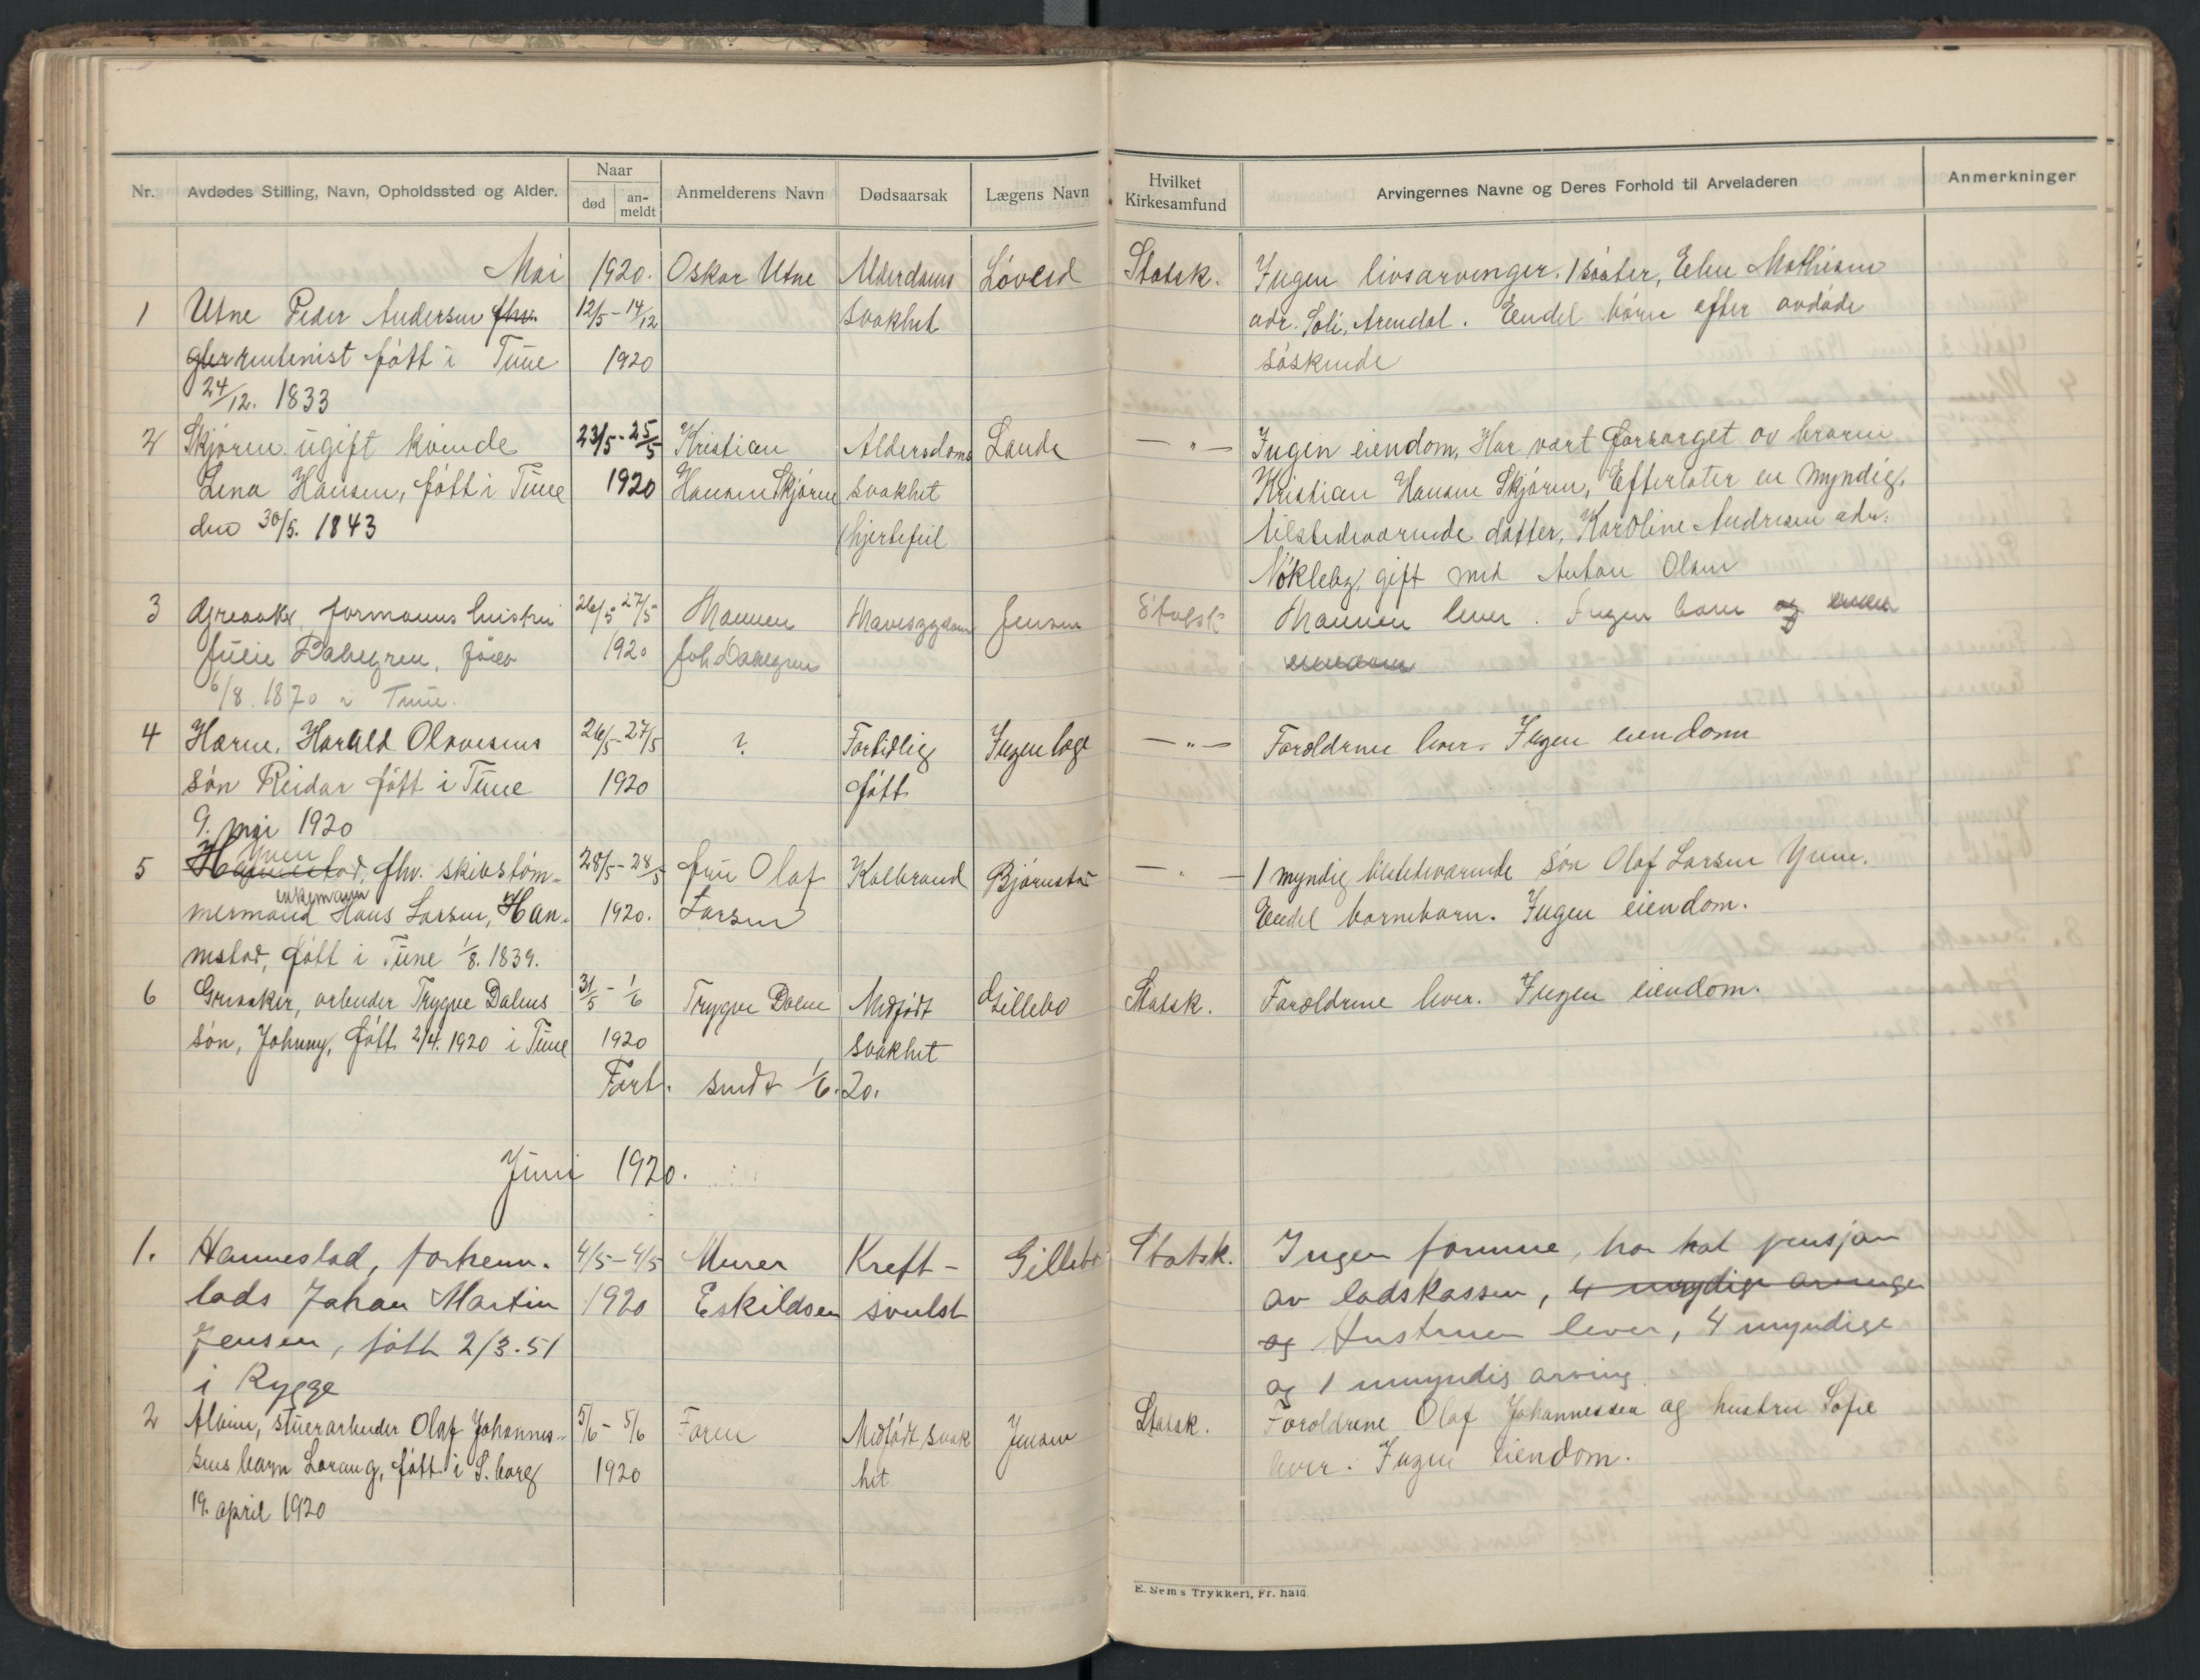 Nr.
Avdødes Stilling, Navn, Opholdssted og Alder.
Naar
død
an-
meldt
Anmelderens Navn
Dødsaarsak
Lægens Navn
Hvilket
Kirkesamfund
Arvingernes Navne og Deres Forhold til Arveladeren
Anmerkninger
Mai 1920.
1
Utne Peder Andersen fhv.
rentenist født i Tune
24/12. 1833
12/5 - 14/12
1920
Oskar Utne
Alderdoms
svakhet
Løveid
Statsk.
Ingen livsarvinger. 1 søster, Elen Mathisen
adr. Soli, Arendal. Endel børn efter avdøde
søskende
2
Skjøren ugift kvinde
Lena Hansen, født i Tune
den 30/5. 1843
23/5 - 25/5
1920
Kristian
Hansen Skjøren
Aldersdoms
svakhet
(hjertefeil
Lande
— " —
Ingen eiendom, Har vært forsørget av broren
Kristian Hansen Skjøren, Efterlater en myndig,
tilstedeværende datter, Karoline Andresen adr.
Nøkleby, gift med Anton Olsen
3
Greaaker formanns hustru
Julie Dahlgren, født
6/8. 1870 i Tune.
26/5 27/5
1920
Mannen
Joh Dahlgren
Mavesygdom
Jensen
Statsk
Mannen lever. Ingen barn og
eiendom
4
Hærne, Harald Olavesens
søn Reidar født i Tune
9. mai 1920
26/5 - 27/5
1920
?
Fortidlig
født
Ingen læge
— " —
Foreldrene lever. Ingen eiendom
5
Yven
Hannestad, fhv. skibstøm-
enkemann
mermand Hans Larsen, Han-
nestad, født i Tune 1/8. 1839.
28/5 - 28/5
1920.
fru Olaf
Larsen
Kolbrand
Bjørnsta
— " —
1 myndig tilstedeværende søn Olaf Larsen Yven.
Endel barnebarn. Ingen eiendom.
6
Greaaker, arbeider Trygve Dalens
søn, Johnny, født 2/4. 1920 i Tune
31/5 - 1/6
1920
Trygve Dalen
Medfødt
svakhet
Gillebo
Statsk.
Foreldrene lever. Ingen eiendom.
Fort. sendt 1/6. 20.
Juni 1920.
1.
Hannestad, forhenv.
lods Johan Martin
Jensen, født 2/3-51
i Rygge
4/5 - 4/5
1920
Murer
Eskildsen
Kreft-
svulst
Gillebo
Statsk.
Ingen formue, har hat pensjon
av lodskassen, 4 myndige arvinger
og Hustruen lever, 4 myndige
og 1 umyndig arving.
2
Alvim, stuerarbeider Olaf Johannes-
sens barn Loraug, født i S.borg
19. april 1920
5/6 - 5/6
1920
Faren
Medfødt svak
het
Jensen
Statsk.
Foreldrene Olaf Johannessen og hustru Sofie
lever. Ingen eiendom.
E. Sem's Trykkeri, Fr. hald